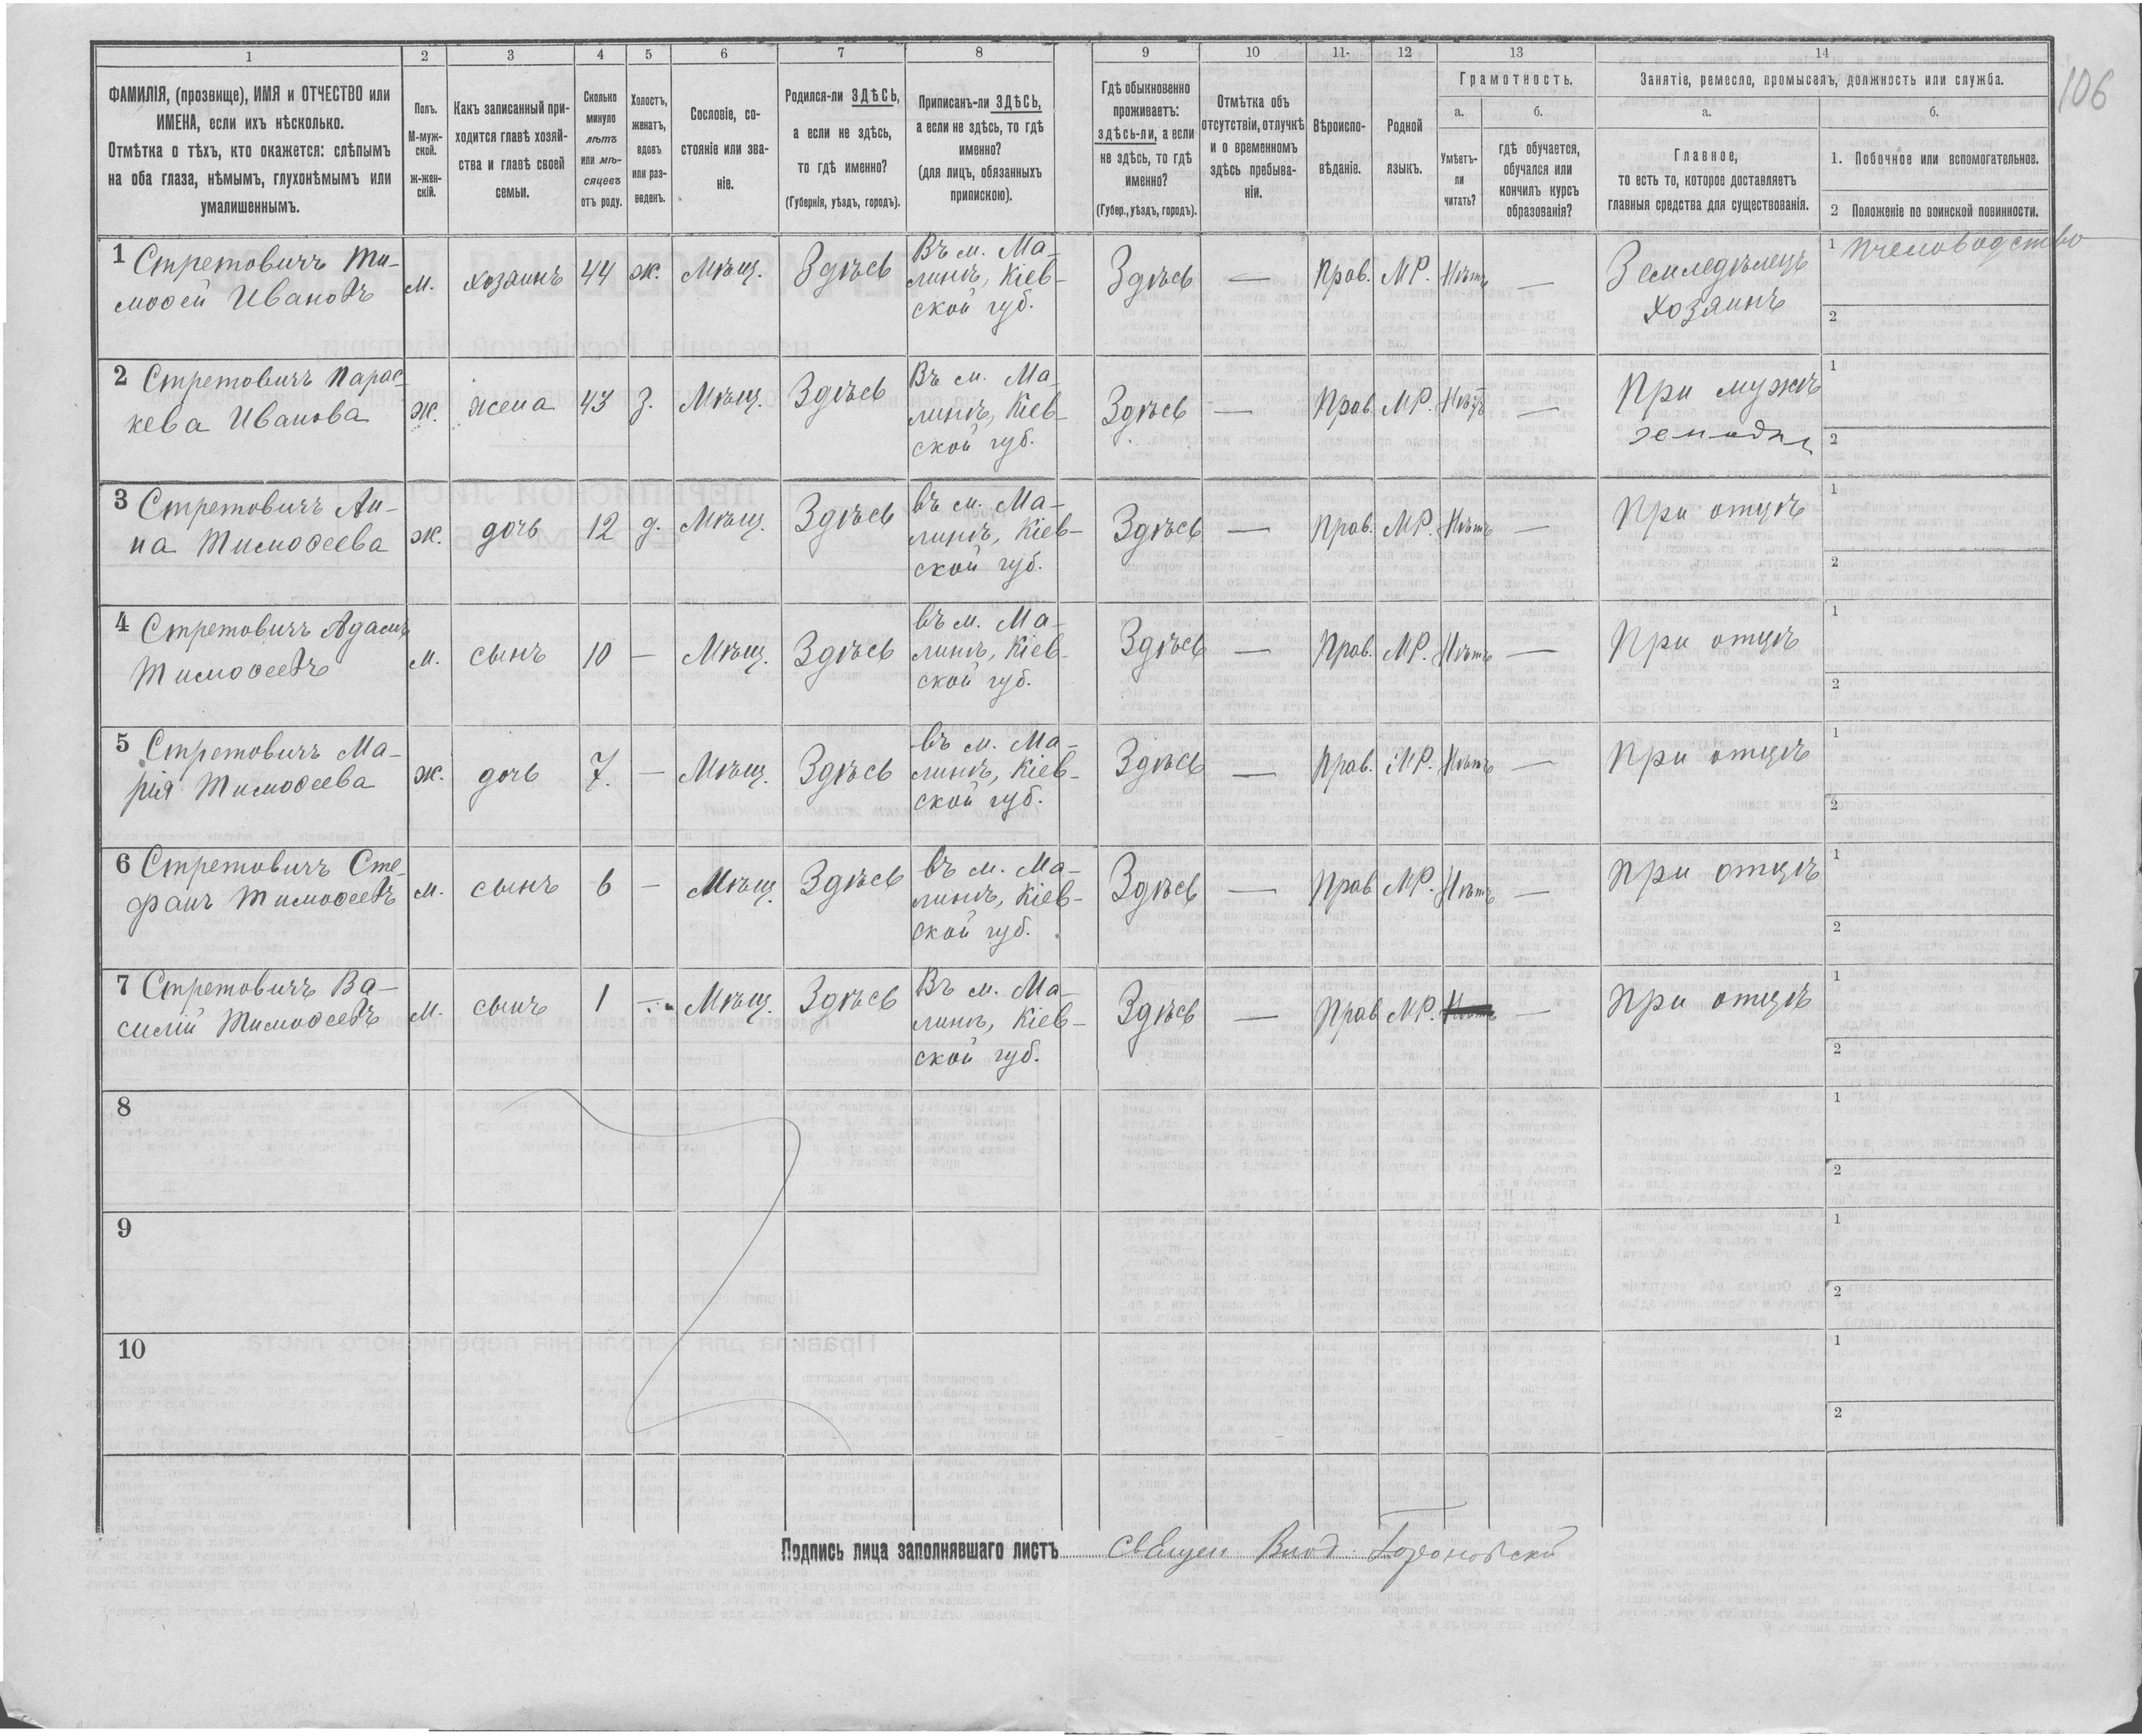 106
1 2 3 4 5 6 7 8 9 10 11 12 13 14
ФАМИЛІЯ, (прозвище), ИМЯ и ОТЧЕСТВО или
ИМЕНА, если ихъ нѣсколько.
Отмѣтка о тѣхъ, кто окажется: слѣпымъ
на оба глаза, нѣмымъ, глухонѣмымъ или
умалишеннымъ.
Полъ.
М-муж-
ской.
Ж-жен-
скій.
Какъ записанный при-
ходится главѣ хозяй-
ства и главѣ своей
семьи.
Сколько
минуло
лѣтъ
или мѣ-
сяцевъ
отъ роду.
Холостъ,
женатъ,
вдовъ
или раз-
веденъ.
Сословіе, со-
стояніе или зва-
ніе.
Родился-ли ЗДѢСЬ,
а если не здѣсь,
то гдѣ именно?
(Губернія, уѣздъ, городъ).
Приписанъ-ли ЗДѢСЬ,
а если не здѣсь, то гдѣ
именно?
(для лицъ, обязанныхъ
припискою).
Гдѣ обыкновенно
проживаетъ:
здѣсь-ли, а если
не здѣсь, то гдѣ
именно?
(Губер., уѣздъ, городъ).
Отмѣтка объ
отсутствіи, отлучкѣ
и о временномъ
здѣсь пребыва-
ніи.
Вѣроиспо-
вѣданіе.
Родной
языкъ.
Грамотность.
а.
Умѣетъ-
ли
читать?
б.
гдѣ обучается,
обучался или
кончилъ курсъ
образованія?
Занятіе, ремесло, промыселъ, должность или служба.
а.
Главное,
то есть то, которое доставляетъ
главныя средства для существованія.
б.
1. Побочное или вспомогательное.
2 Положеніе по воинской повинности.
1 Стретовичъ Ти-
моѳей Ивановъ
м. хозяинъ 44 ж. Мѣщ. Здѣсь
Въ м. Ма-
линѣ, Кіев-
ской губ.
Здѣсь — Прав. МР. Нѣтъ —
Земледѣлецъ
хозяинъ
1 Пчеловодство
2
2 Стретовичъ Парас-
кева Иванова
ж. жена 43 з. Мѣщ. Здѣсь
Въ м. Ма-
линѣ, Кіев-
ской губ.
Здѣсь — Прав МР. Нѣтъ —
При мужѣ
1
2
3 Стретовичъ Ан-
на Тимоѳеева
ж. дочь 12 д. Мѣщ. Здѣсь
въ м. Ма-
линѣ, Кіев-
ской губ.
Здѣсь — Прав. МР. Нѣтъ —
При отцѣ
1
2
4 Стретовичъ Адамъ
Тимоѳеевъ
м. сынъ 10 — Мѣщ. Здѣсь
въ м. Ма-
линѣ, Кіев-
ской губ.
Здѣсь — Прав. МР. Нѣтъ —
При отцѣ
1
2
5 Стретовичъ Ма-
рія Тимоѳеева
ж. дочь 7. — Мѣщ. Здѣсь
въ м. Ма-
линѣ, Кіев-
ской губ.
Здѣсь — Прав. МР. Нѣтъ —
При отцѣ
1
2
6 Стретовичъ Сте-
фанъ Тимоѳеевъ
м. сынъ 6 — Мѣщ. Здѣсь
въ м. Ма-
линѣ, Кіев-
ской губ.
Здѣсь — Прав МР. Нѣтъ —
При отцѣ
1
2
7 Стретовичъ Ва-
силій Тимоѳеевъ
м. сынъ 1 — Мѣщ. Здѣсь
Въ м. Ма-
линѣ, Кіев-
ской губ.
Здѣсь — Прав МР. —
При отцѣ
1
2
8
1
2
9
1
2
10
1
2
Подпись лица заполнявшаго листъ Священ Влод